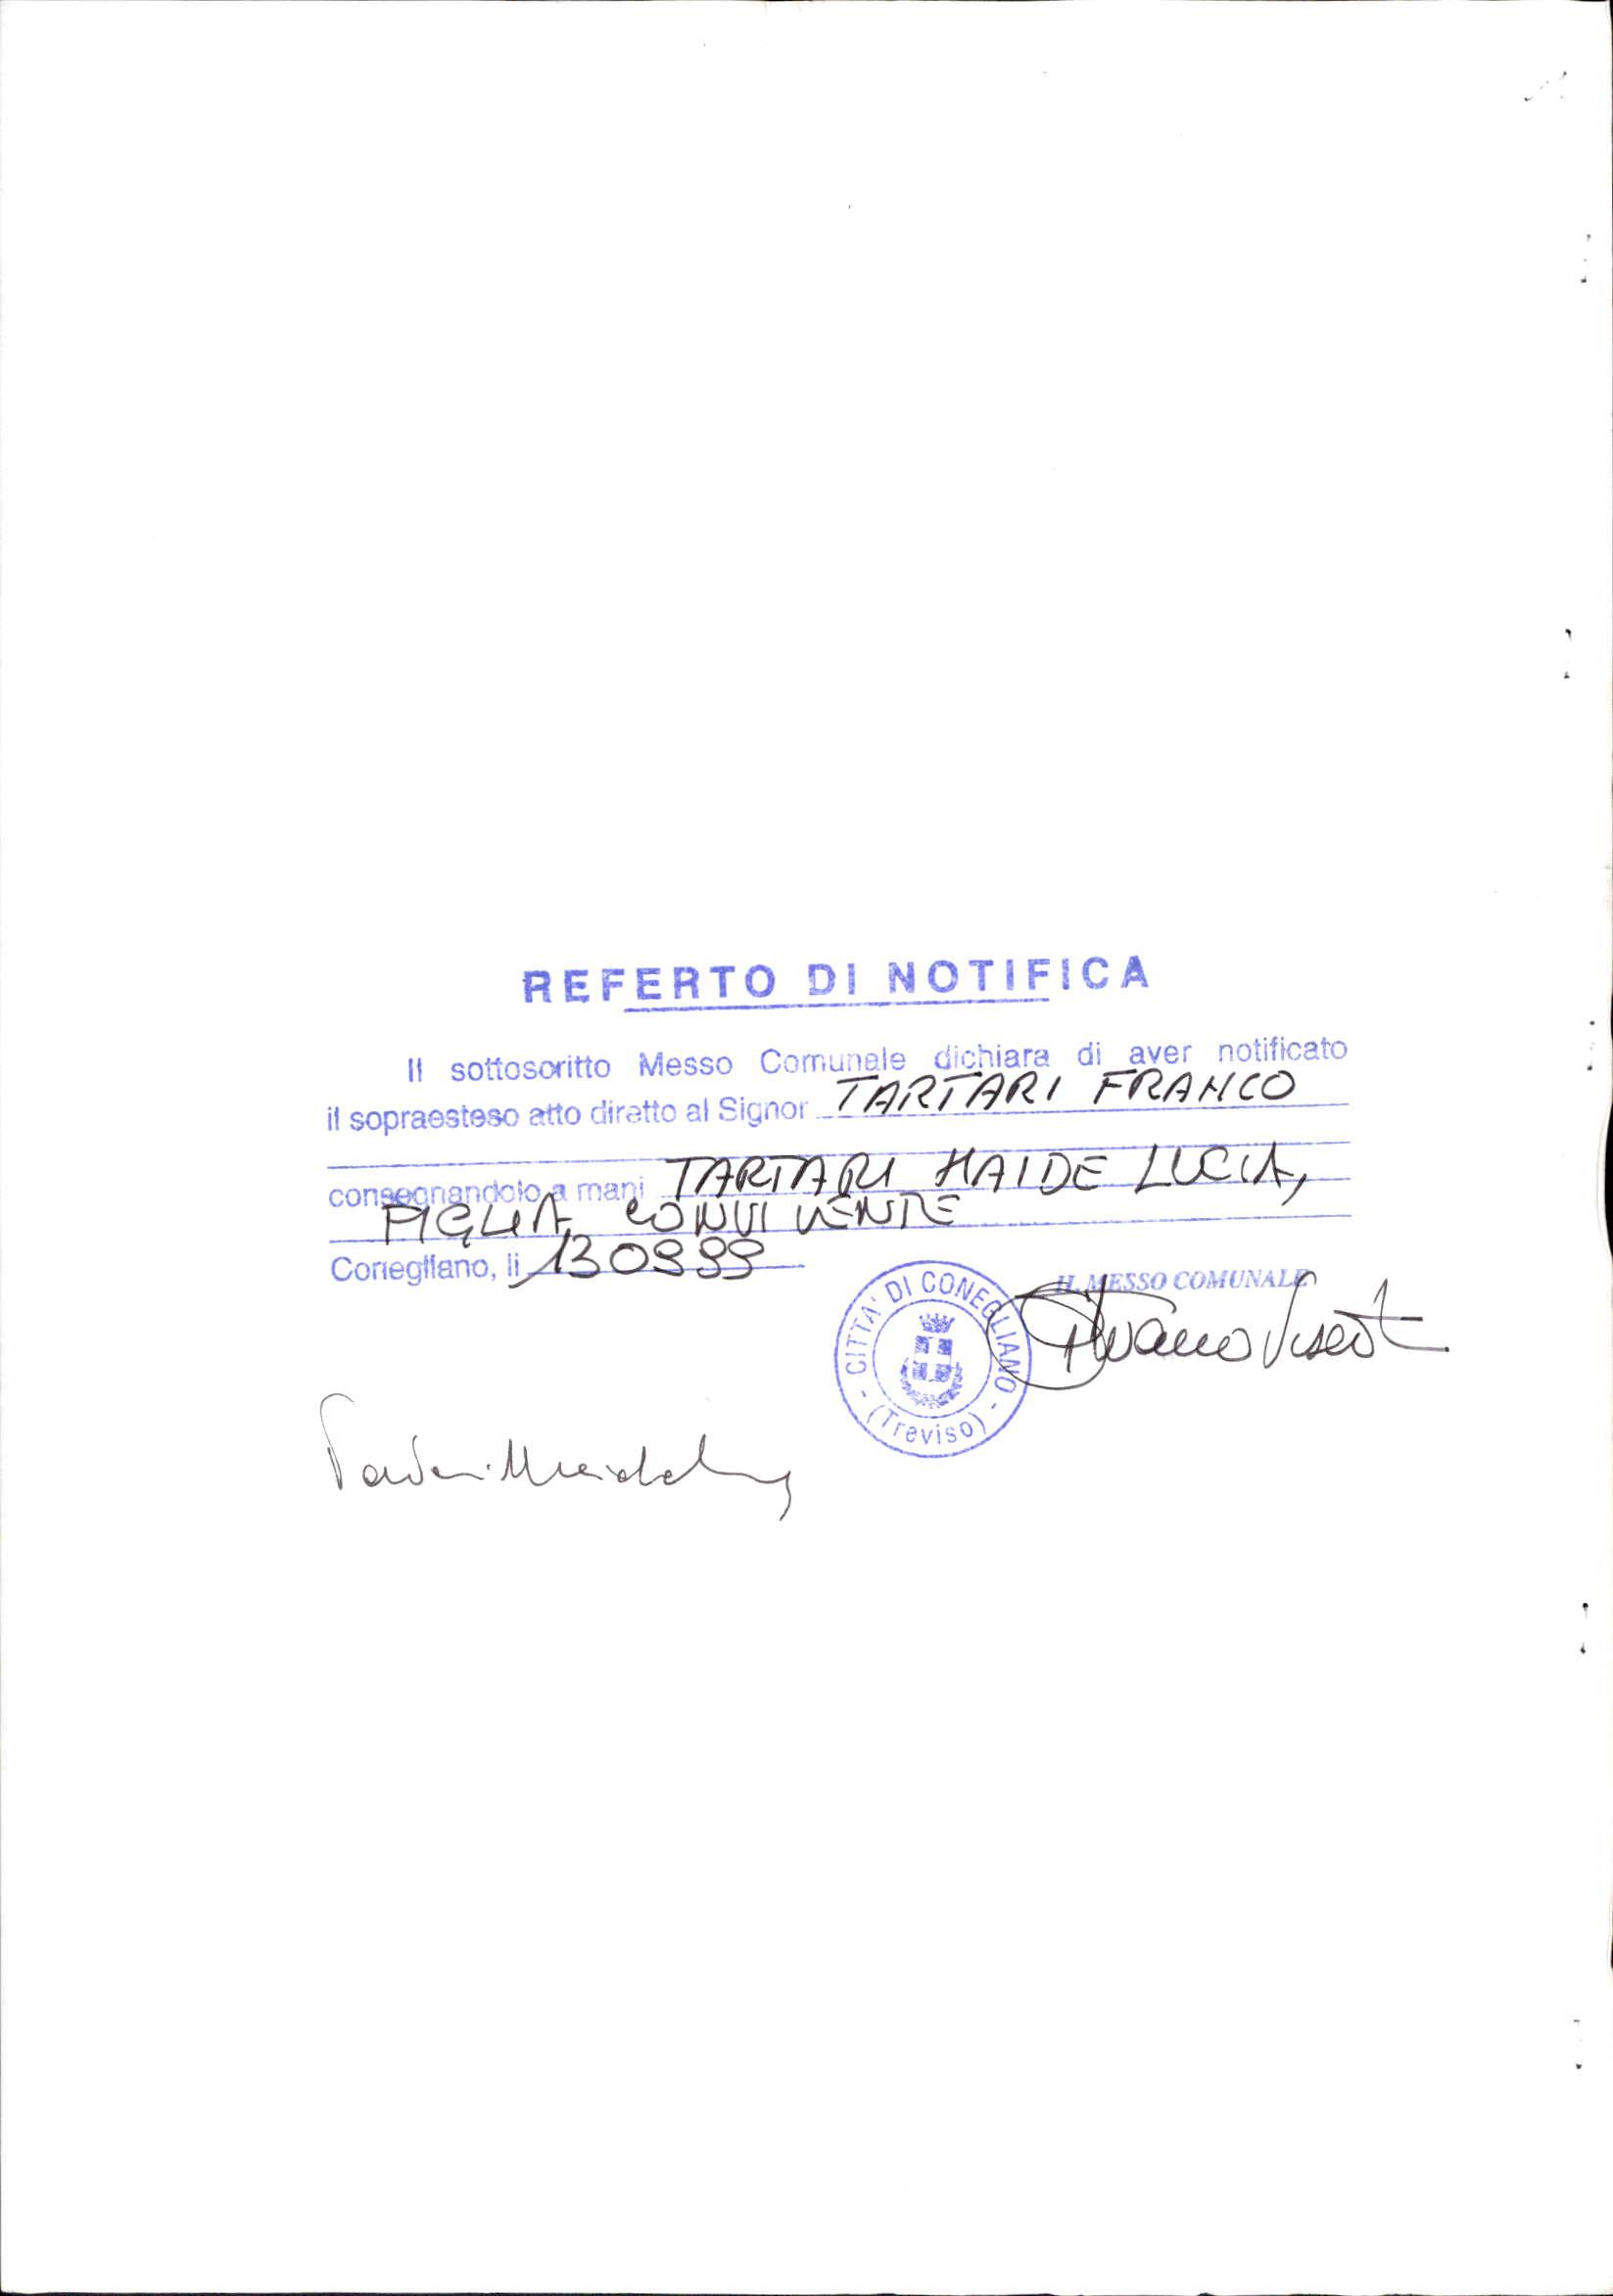 REFERTO DI NOTIFICA
Il sottosoritto Messo Comunale dichiara di aver notificato
il sopraesteso atto diretto al Signor TARTARI FRANCO
consegnandolo a mani TARTARI HAIDE LUCIA,
FIGLIA CONVIVENTE
Conegliano, li 130999
IL MESSO COMUNALE
CITTA' DI CONEGLIANO
(Treviso)